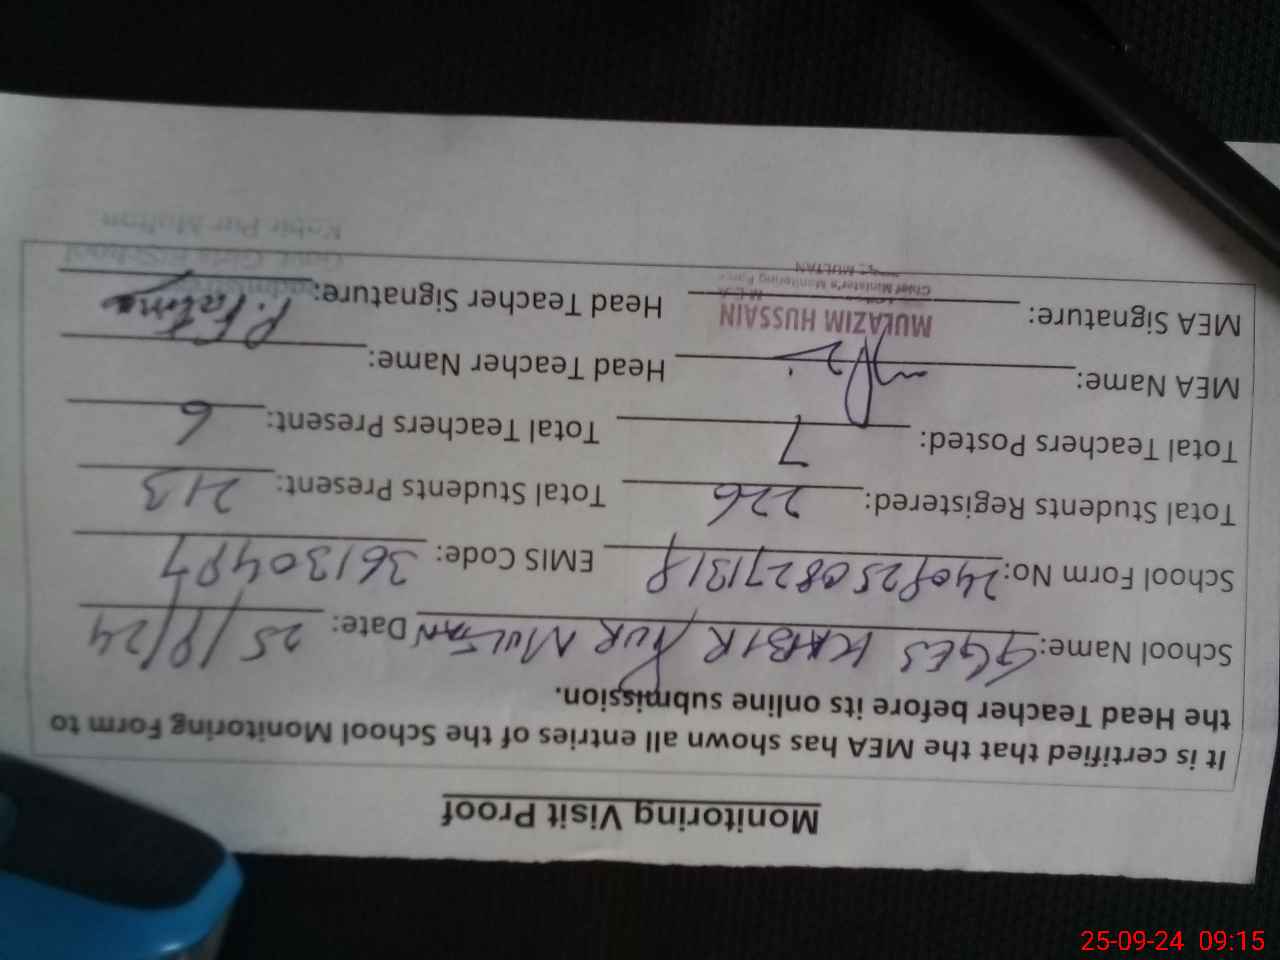 Monitoring Visit Proof
It is certified that the MEA has shown all entries of the School Monitoring Form to
the Head Teacher before its online submission.
School Name: GGES KABIR PUR MULTAN Date: 25/9/24
School Form No: EMIS Code:
Total Students Registered: 226 Total Students Present: 213
Total Teachers Posted: 7 Total Teachers Present: 6
MEA Name: Head Teacher Name:
MEA Signature: MULAZIM HUSSAIN Head Teacher Signature: P. Fatima
M.E.A
Chief Minister's Monitoring Force
MULTAN
Govt. Girls E/School
Kabir Pur Multan
25-09-24 09:15